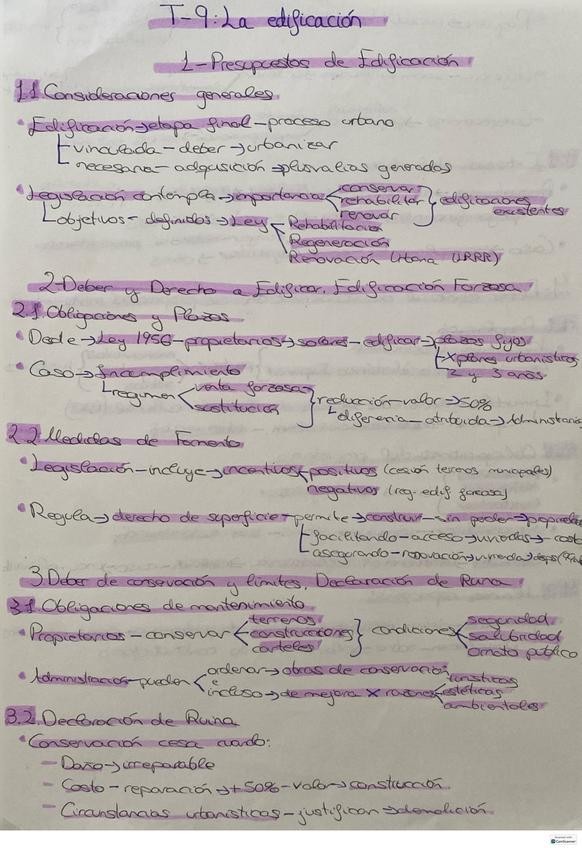 T-9: La edificación
1- Presupuestos de Edificación
1.1 Consideraciones generales
• Edificación → etapa final - proceso urbano
vinculada - deber → urbanizar
necesaria - adquisición → plusvalías generadas
• Legislación contempla → importancia conservar
rehabilitar } edificaciones existentes
renovar
objetivos - definidos → Ley Rehabilitación
Regeneración
Renovación Urbana (LRRR)
2- Deber y Derecho a Edificar. Edificación Forzosa
2.1 Obligaciones y Plazos
• Desde → Ley 1956 - propietarios → solares - edificar → plazos fijos
x planes urbanísticos
2 y 3 años
• Caso → incumplimiento
régimen venta forzosa
sustitución } reducción - valor → 50%
diferencia - atribuida →
2.2 Medidas de Fomento
• Legislación - incluye → incentivos positivos (cesión terrenos municipales)
negativos (reg. edif. forzosa)
• Regula → derecho de superficie - permite → construir - sin poder →
facilitando - acceso → viviendas -
asegurando - renovación → vivienda →
3. Deber de conservación y límites. Declaración de Ruina
3.1 Obligaciones de mantenimiento
• Propietarios - conservar terrenos
construcciones } condiciones seguridad
carteles salubridad
ornato público
• Administración - pueden ordenar → obras de conservación
e incluso → de mejora x razones turísticas
estéticas
ambientales
3.2 Declaración de Ruina
• Conservación cesa cuando:
- Daño → irreparable
- Costo - reparación → +50% - valor → construcción
- Circunstancias urbanísticas - justifican → demolición
Scanned with
CamScanner